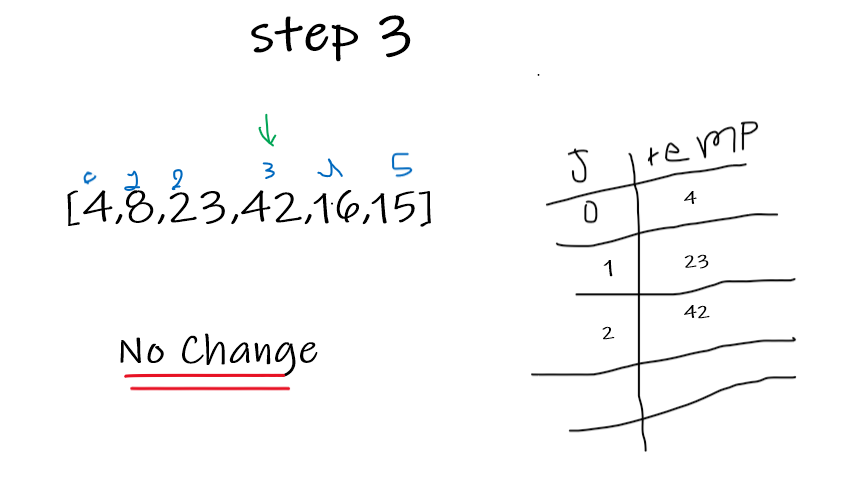 step 3
0 1 2 3 4 5
[4,8,23,42,16,15]
No Change
J temp
0 4
1 23
2 42